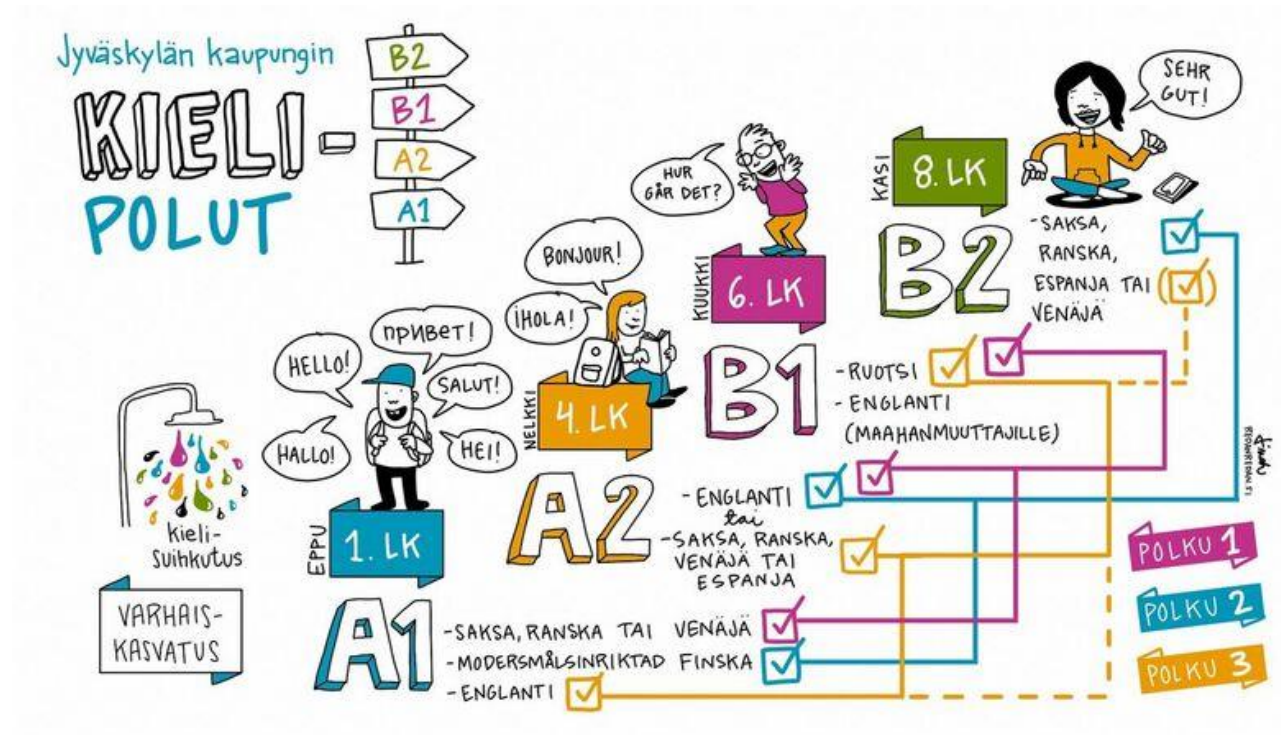 Jyväskylän kaupungin
KIELI-
POLUT
B2
B1
A2
A1
kieli-
suihkutus
VARHAIS-
KASVATUS
HELLO!
ПРИВЕТ!
SALUT!
HALLO!
HEI!
EPPU
1. LK
A1
-SAKSA, RANSKA TAI VENÄJÄ
-MODERSMÅLSINRIKTAD FINSKA
-ENGLANTI
BONJOUR!
¡HOLA!
NELKKI
4. LK
A2
-ENGLANTI
tai
-SAKSA, RANSKA,
VENÄJÄ TAI
ESPANJA
HUR
GÅR DET?
KUUKKI
6. LK
B1
-RUOTSI
-ENGLANTI
(MAAHANMUUTTAJILLE)
SEHR
GUT!
KASI
8. LK
B2
-SAKSA,
RANSKA,
ESPANJA TAI
VENÄJÄ
POLKU 1
POLKU 2
POLKU 3